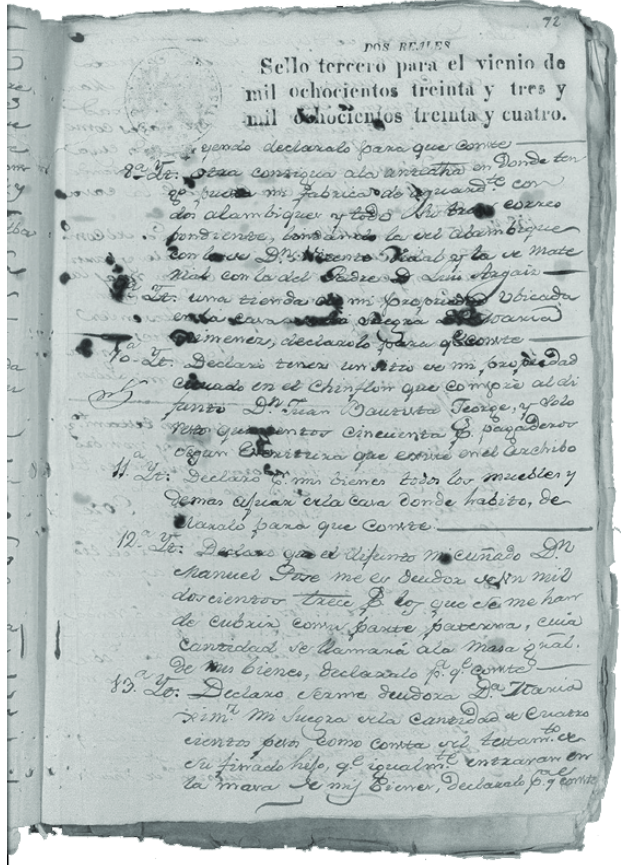 72
DOS REALES
Sello tercero para el vienio de
mil ochocientos treinta y tres y
mil ochocientos treinta y cuatro.
yendo declaralo para que conste
8.ª Yt. otra contigua ala en Donde ten
go puesta mi fabrica de aguard.te con
dos alambiques y todo corres
pondiente, lindando la del alambique
con la de D.n Vicente Vidal y la de Mate
rial con la del Padre D. Luis
Yt. una tienda de mi propriedad Ubicada
en la casa suegra Maria
Ximenez, declaralo para q.e conste
10.ª Yt. Declaro tener un sitio de mi propiedad
cituado en el Chinflon que compré al di
funto D.n Juan Bautista George, y solo
resto quinientos cincuenta p.s pagaderos
segun Escritura que existe en el Archibo
11.ª Yt. Declaro p.r mis bienes todos los muebles y
demas ajuar de la casa donde habito, de
claralo para que conste
12.ª Yt. Declaro que el difunto mi cuñado D.n
Manuel Jose me es deudor de un mil
doscientos trece p.s los que se me han
de cubrir como parte paterna, cuia
cantidad se llamará ala masa gñal.
de mis bienes, declaralo p.a q.e conste
13.ª Yt. Declaro serme deudora D.ª Maria
Xim.z mi suegra de la cantidad de cuatro
cientos pesos como consta del testam.to de
su finado hijo, q.e igualm.te entraran en
la masa de mis bienes, declaralo p.a q.e conste